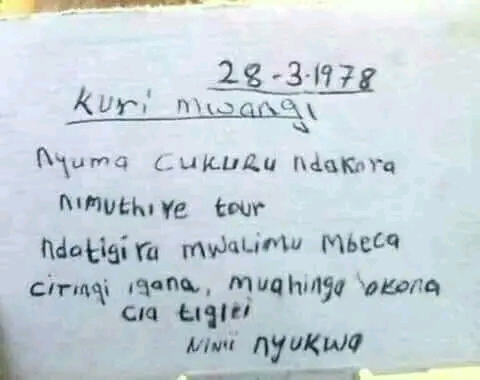 28-3-1978
Kuri mwangi
nyuma cukuru ndakora
nimuthiye tour
ndatigira mwalimu mbeca
ciringi igana, muahinga okona
cia tigiti
Ninii nyukwa